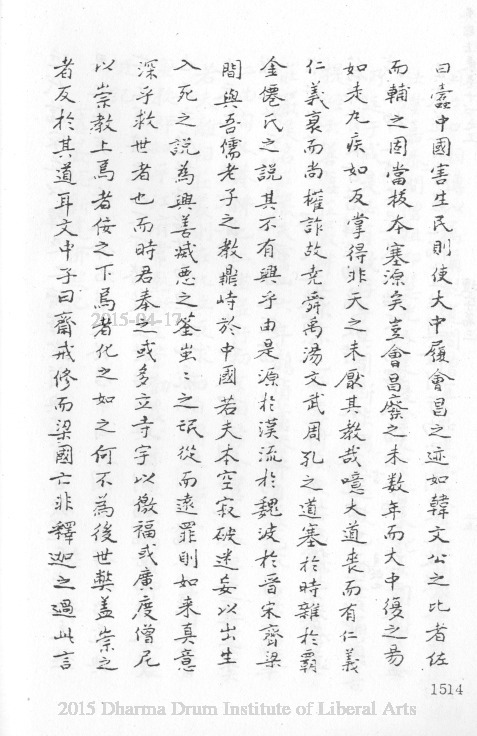 曰蠹中國害生民則使大中履會昌之迹如韓文公之比者佐
而輔之固當拔本塞源矣豈會昌廢之未数年而大中復之易
如走丸疾如反掌得非天之未厭其教哉噫大道喪而有仁義
仁義衰而尚權詐故尭舜禹湯文武周孔之道塞於時雜於霸
金僊氏之説其不有興乎由是源於漢流於魏波於晉宋齊梁
間與吾儒老子之教鼎峙於中國若夫本空寂破迷妄以出生
入死之説為興善滅悪之筌蚩〻之氓從而遠罪則如来真意
深乎救世者也而時君奉之或多立寺宇以徼福或廣度僧尼
以崇教上焉者佞之下焉者化之如之何不為後世弊盖崇之
者反於其道耳文中子曰齋戒修而梁國亡非釋迦之過此言
1514
2015-04-17
2015 Dharma Drum Institute of Liberal Arts